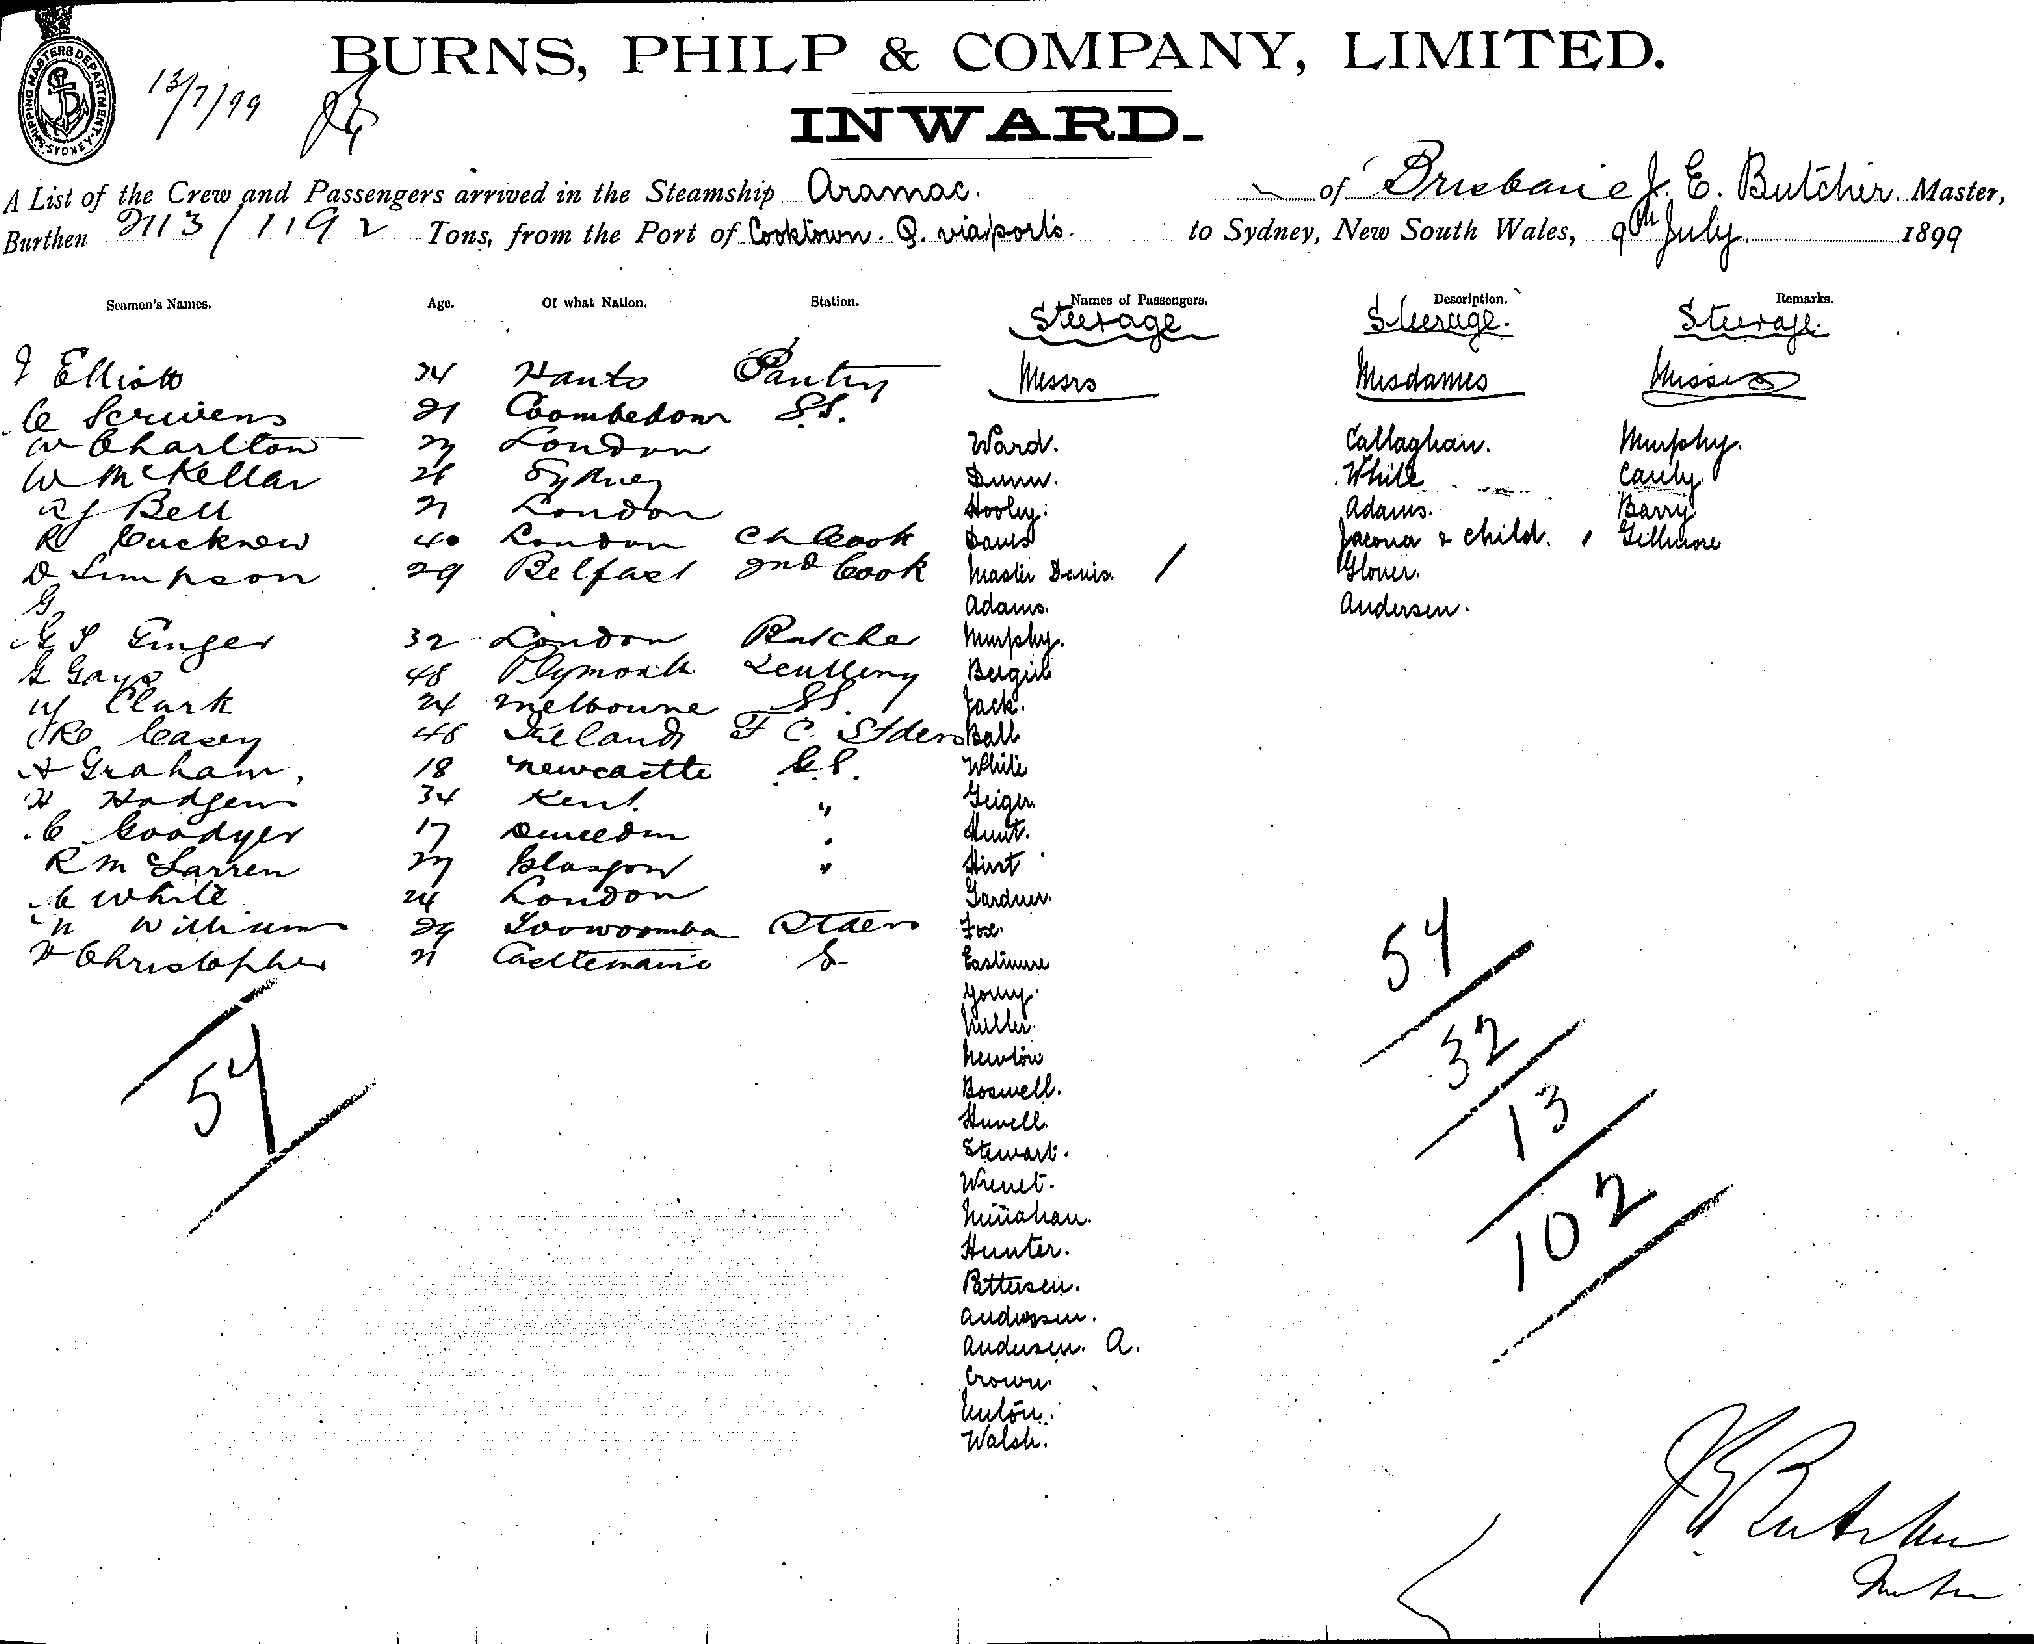 BURNS, PHILP & COMPANY, LIMITED.
13/7/99
INWARD.
A List of the Crew and Passengers arrived in the Steamship Aramac. of Brisbane J. E. Butcher. Master,
Burthen 2113/1192 Tons, from the Port of Cooktown. Q. via ports. to Sydney, New South Wales, 9th July 1899
Seamen's Names. Age. Of what Nation. Station. Names of Passengers. Description. Remarks.
Steerage Steerage. Steerage.
J Elliott 24 Hants Pantry Messrs Mesdames Misses
C Scrivens 21 Coombedown S.S.
W Charlton 27 London Ward. Callaghan. Murphy.
W McKellar 26 Sydney Dunn. White Cauly
RJ Bell 21 London Hooley. Adams. Barry
R Cucknew 40 London Ch Cook Davis Jacona & Child. Gillmore
D Simpson 29 Belfast 2nd Cook Master Davis. / Glover.
G Adams. Andersen.
G S Ginger 32 London Butcher Murphy.
G Gays 48 Plymouth Scullery
W Clark 24 Melbourne SS. Jack.
R Casey 46 Ireland F C Stders Ball
A Graham, 18 Newcastle G.S. White
H Hodgens 34 Kent. " Geiger.
C Goodyer 17 Dunedin " Hunt.
R M Larren 27 Glasgow " Hirt
C White 24 London Gardner.
W Williams 29 Toowoomba Stdess Fox.
H Christopher 21 Castlemaine S Eastmure
Young.
Miller.
Newton
Boswell.
Howell.
Stewart.
Minahan.
Hunter.
Pattersen.
Anderssen.
Andersen. A.
Crown.
Walsh.
54
54
32
13
102
J E Butcher
Master